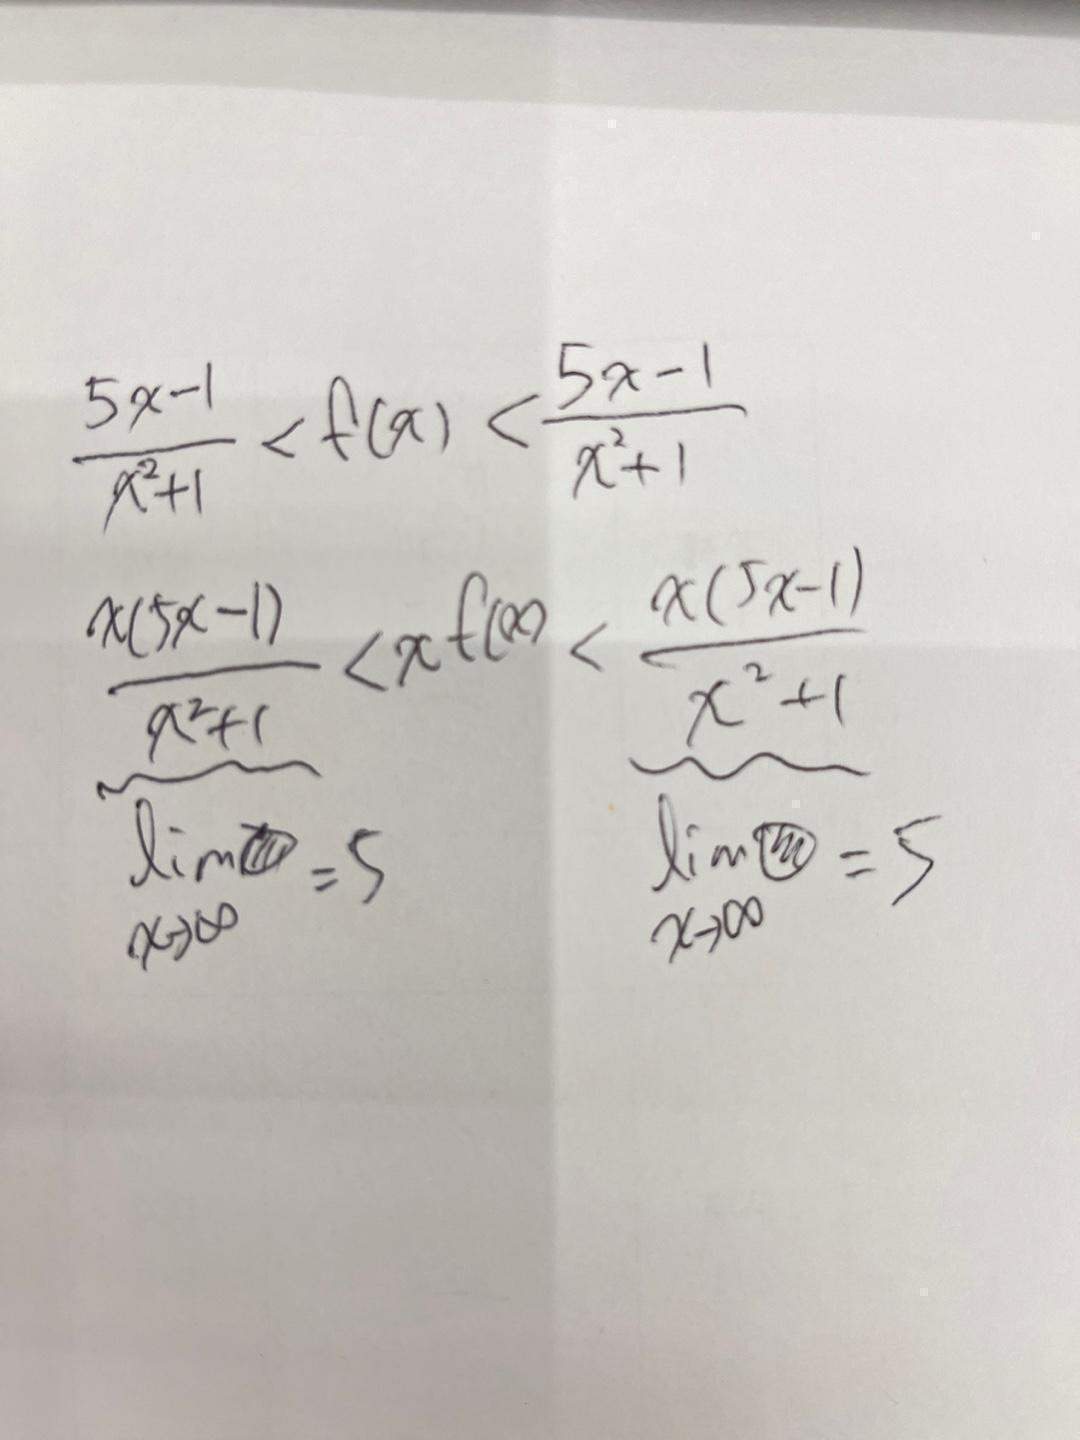 5x-1 / x²+1 < f(x) < 5x-1 / x²+1
x(5x-1) / x²+1 < x f(x) < x(5x-1) / x²+1
lim x→∞ = 5 lim x→∞ = 5